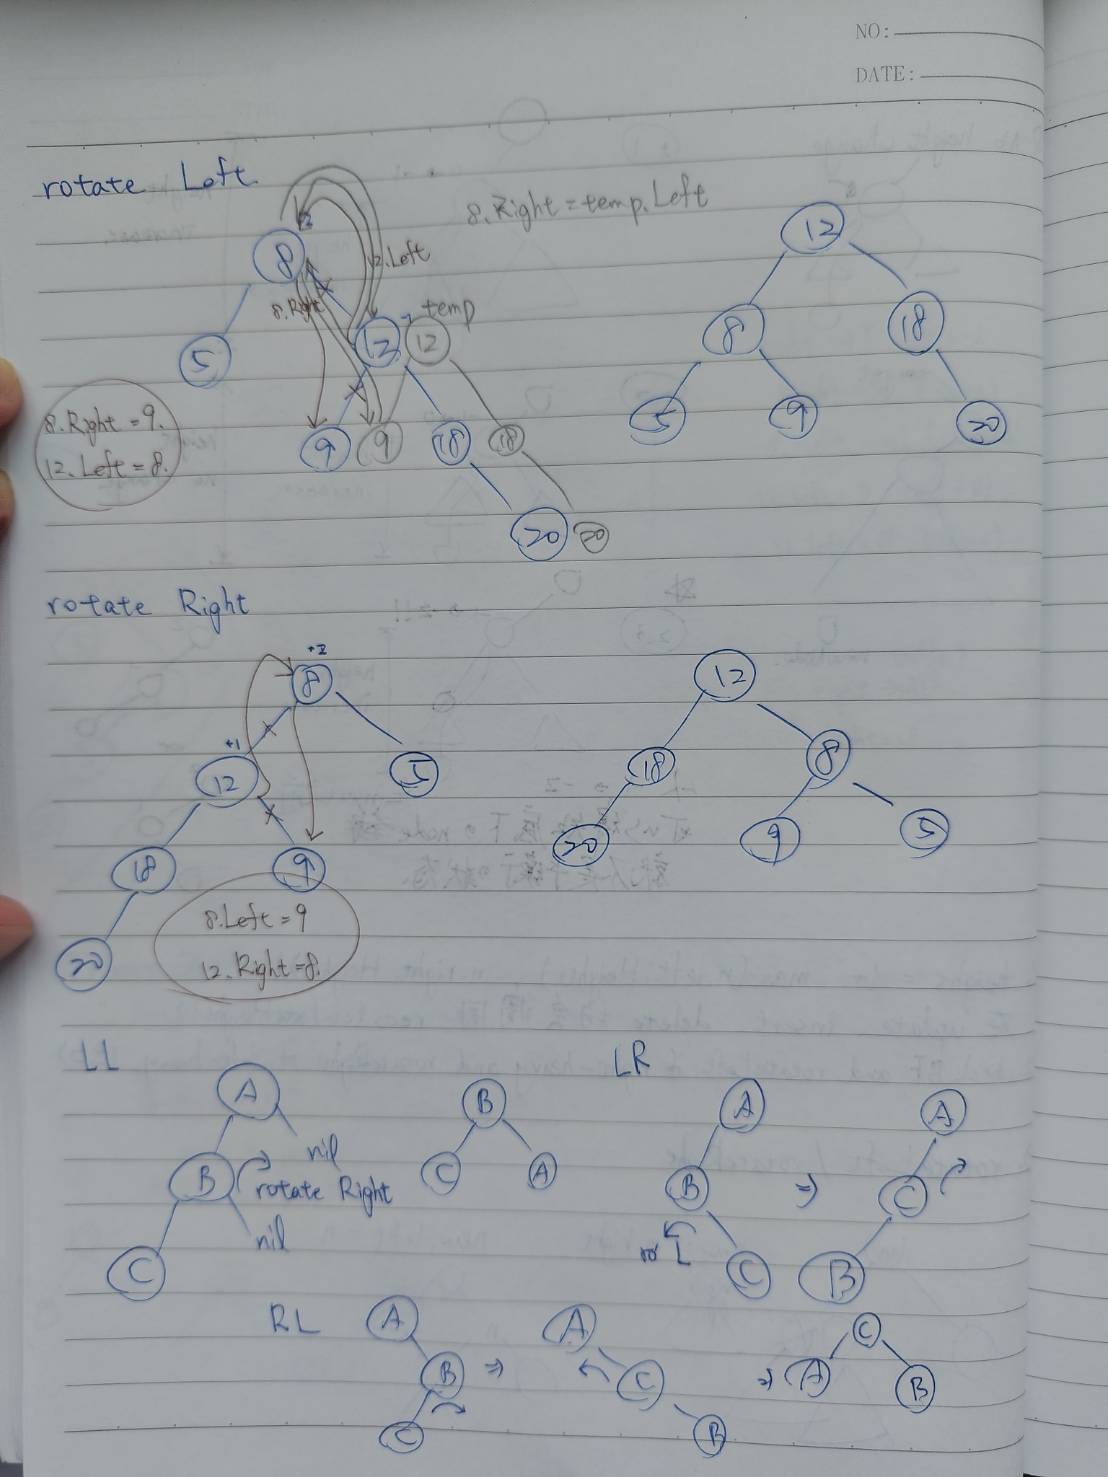 NO:
DATE:
rotate Left
8.Right = temp.Left
2
8
12.Left
8.Right
temp
5
12
12
9
9
18
18
20
20
8.Right = 9.
12.Left = 8.
12
8
18
5
9
20
rotate Right
+2
8
+1
12
5
18
9
20
8.Left = 9
12.Right = 8.
12
18
8
20
9
5
LL
A
nil
B
rotate Right
nil
C
B
C
A
LR
A
B
ro L
C
⇒
A
C
B
RL
A
B
C
⇒
A
C
B
⇒
C
A
B